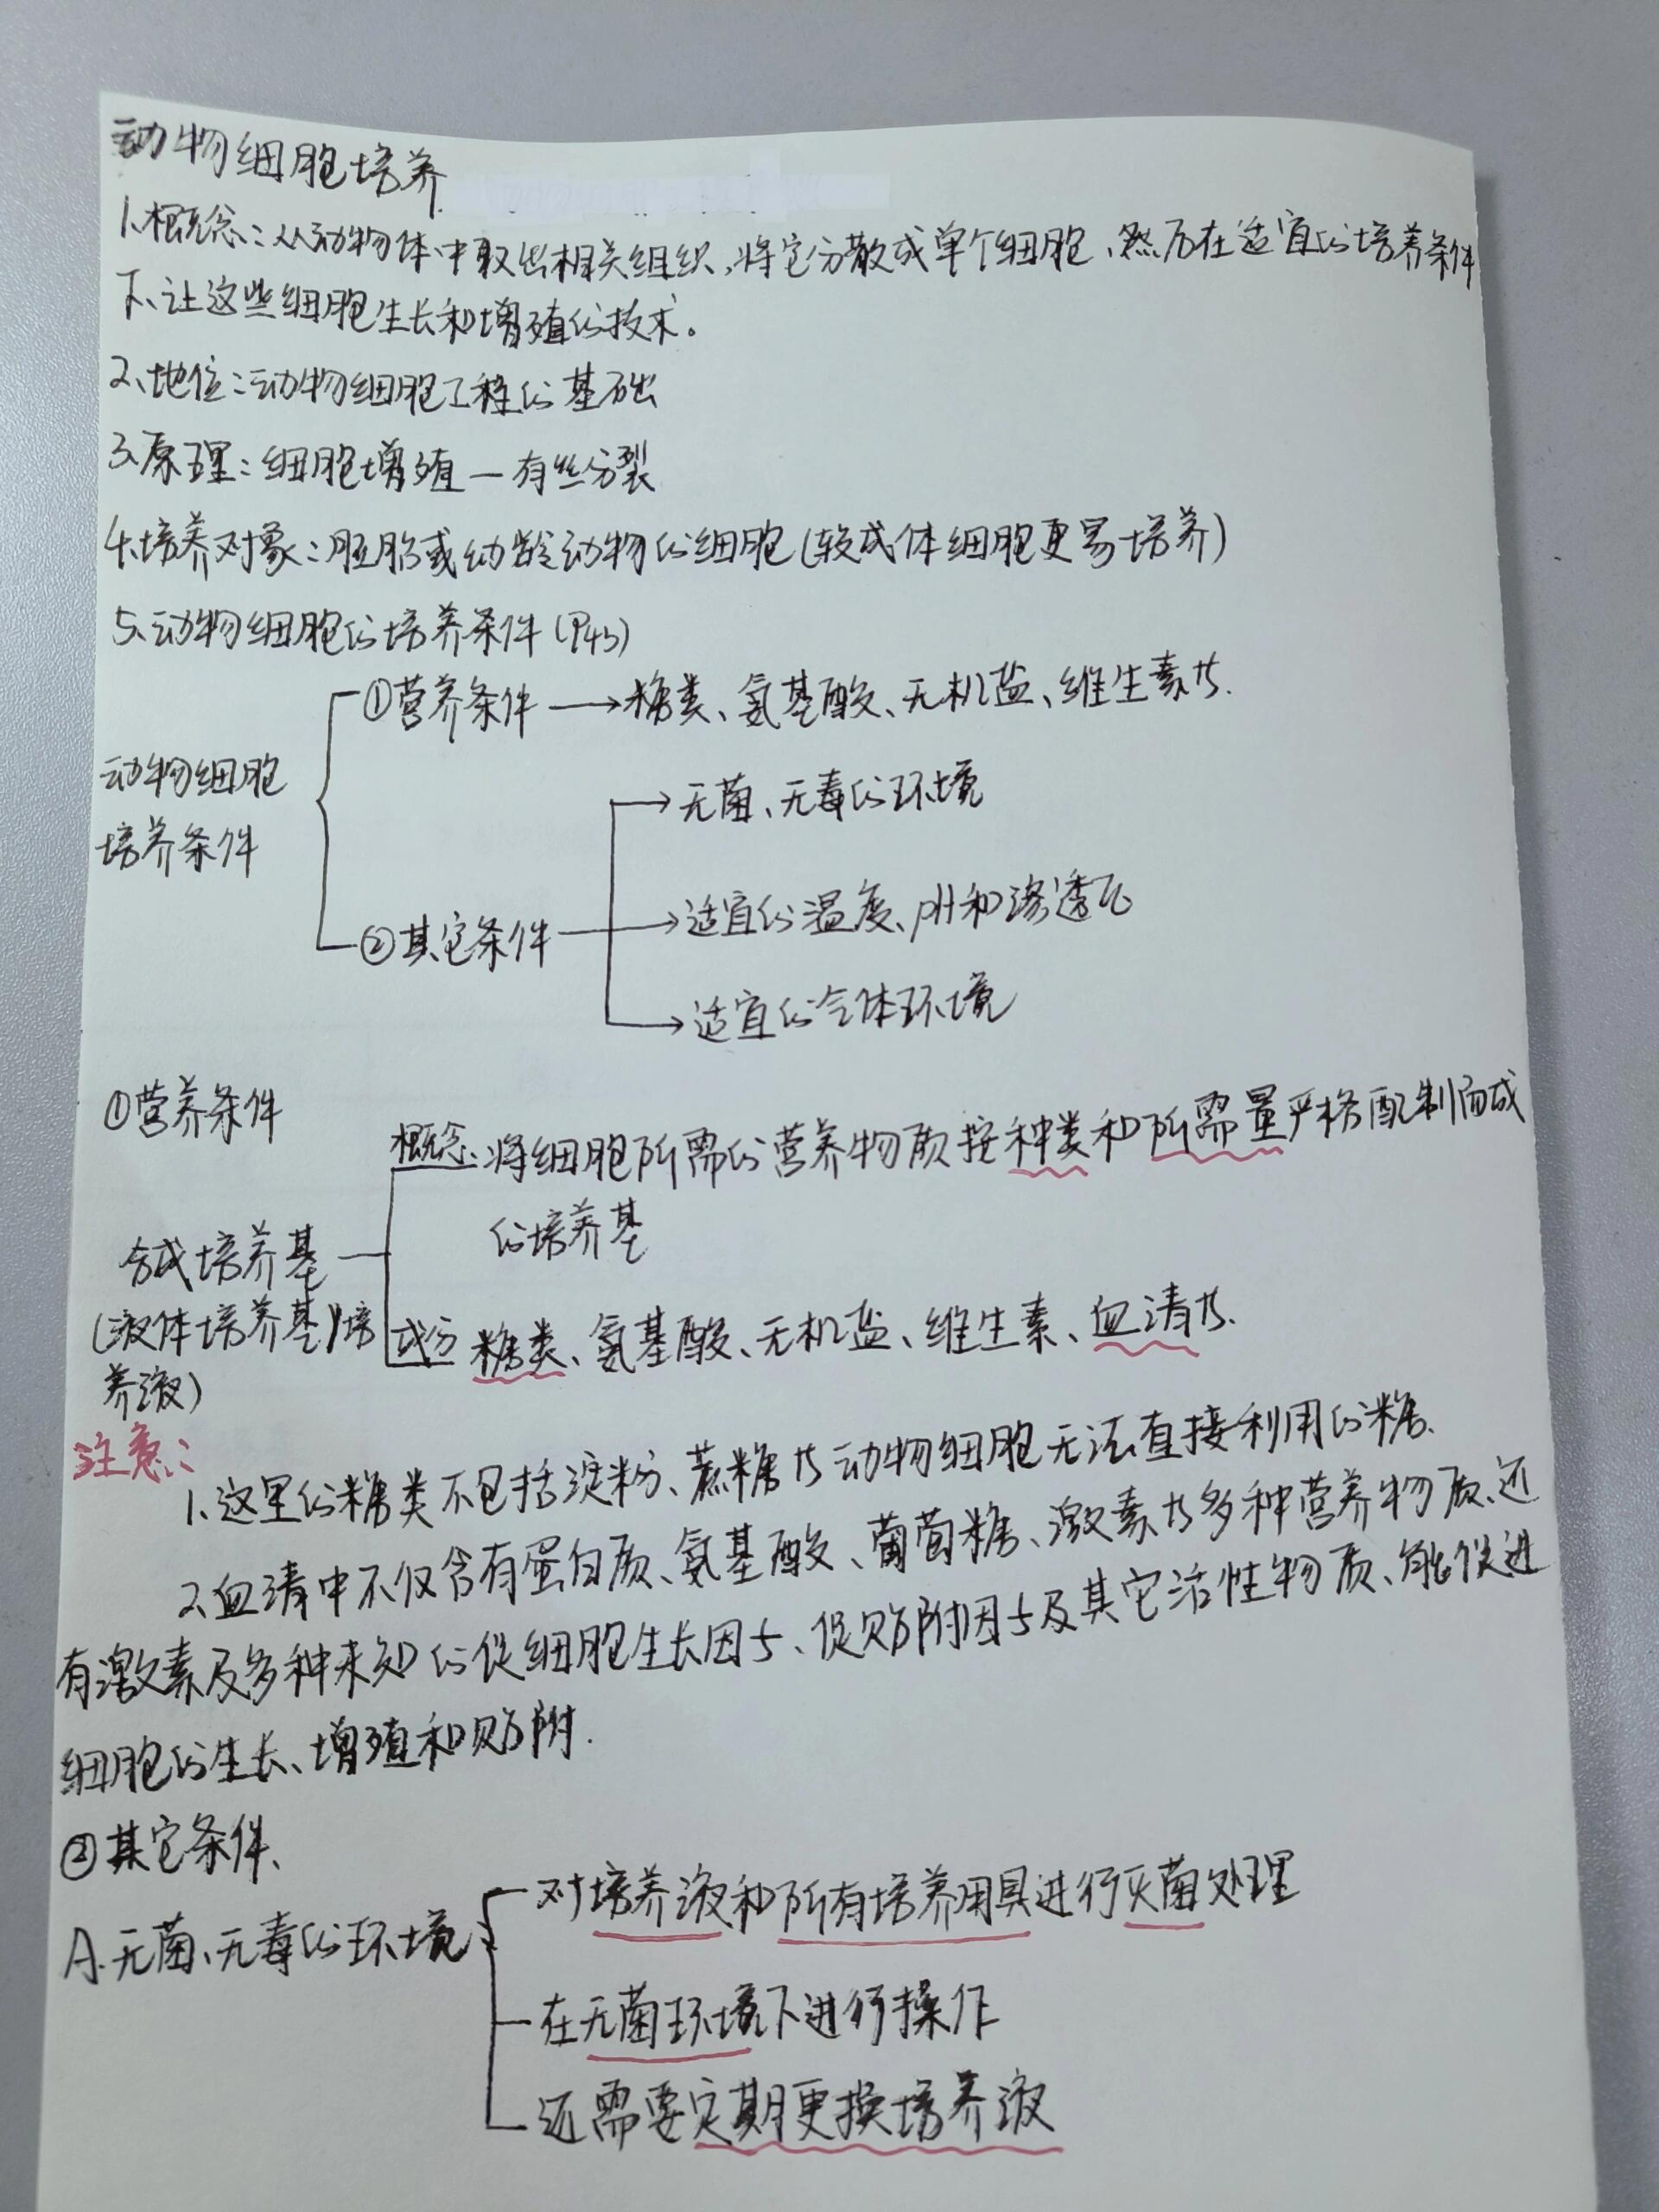 动物细胞培养
1.概念:从动物体中取出相关组织,将它分散成单个细胞、然后在适宜的培养条件
下、让这些细胞生长和增殖的技术。
2、地位:动物细胞工程的基础
3、原理:细胞增殖—有丝分裂
4、培养对象:胚胎或幼龄动物的细胞(较成体细胞更易培养)
5、动物细胞的培养条件(P43)
①营养条件→糖类、氨基酸、无机盐、维生素等.
动物细胞
培养条件
→无菌、无毒的环境
②其它条件
→适宜的温度、pH和渗透压
→适宜的气体环境
①营养条件
概念:将细胞所需的营养物质按种类和所需量严格配制而成
的培养基
合成培养基
(液体培养基)培
养液)
成分 糖类、氨基酸、无机盐、维生素、血清等.
注意:
1、这里的糖类不包括淀粉、蔗糖等动物细胞无法直接利用的糖.
2、血清中不仅含有蛋白质、氨基酸、葡萄糖、激素等多种营养物质、还
有激素及多种未知的促细胞生长因子、促贴附因子及其它活性物质、能促进
细胞的生长、增殖和贴附.
②其它条件、
A.无菌、无毒的环境
对培养液和所有培养用具进行灭菌处理
在无菌环境下进行操作
还需要定期更换培养液